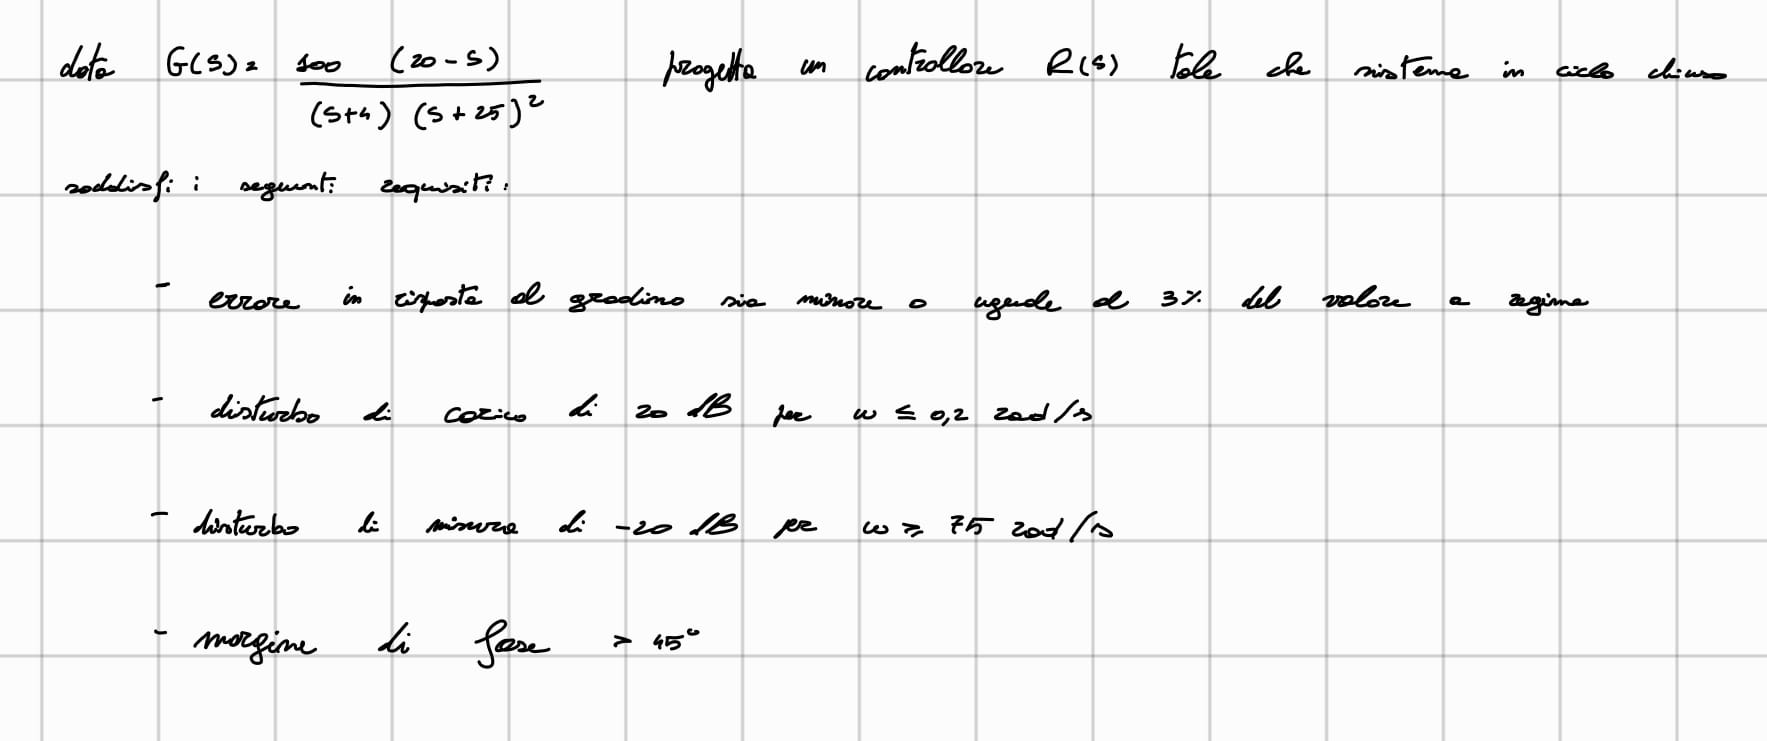 data G(s) = 100 (20 - s) / (s+4) (s + 25)² progetta un controllore R(s) tale che sistema in ciclo chiuso
soddisfi i seguenti requisiti:
- errore in risposta al gradino sia minore o uguale al 3% del valore a regime
- disturbo di carico di 20 dB per ω ≤ 0,2 rad/s
- disturbo di misura di -20 dB per ω ≥ 75 rad/s
- margine di fase > 45°